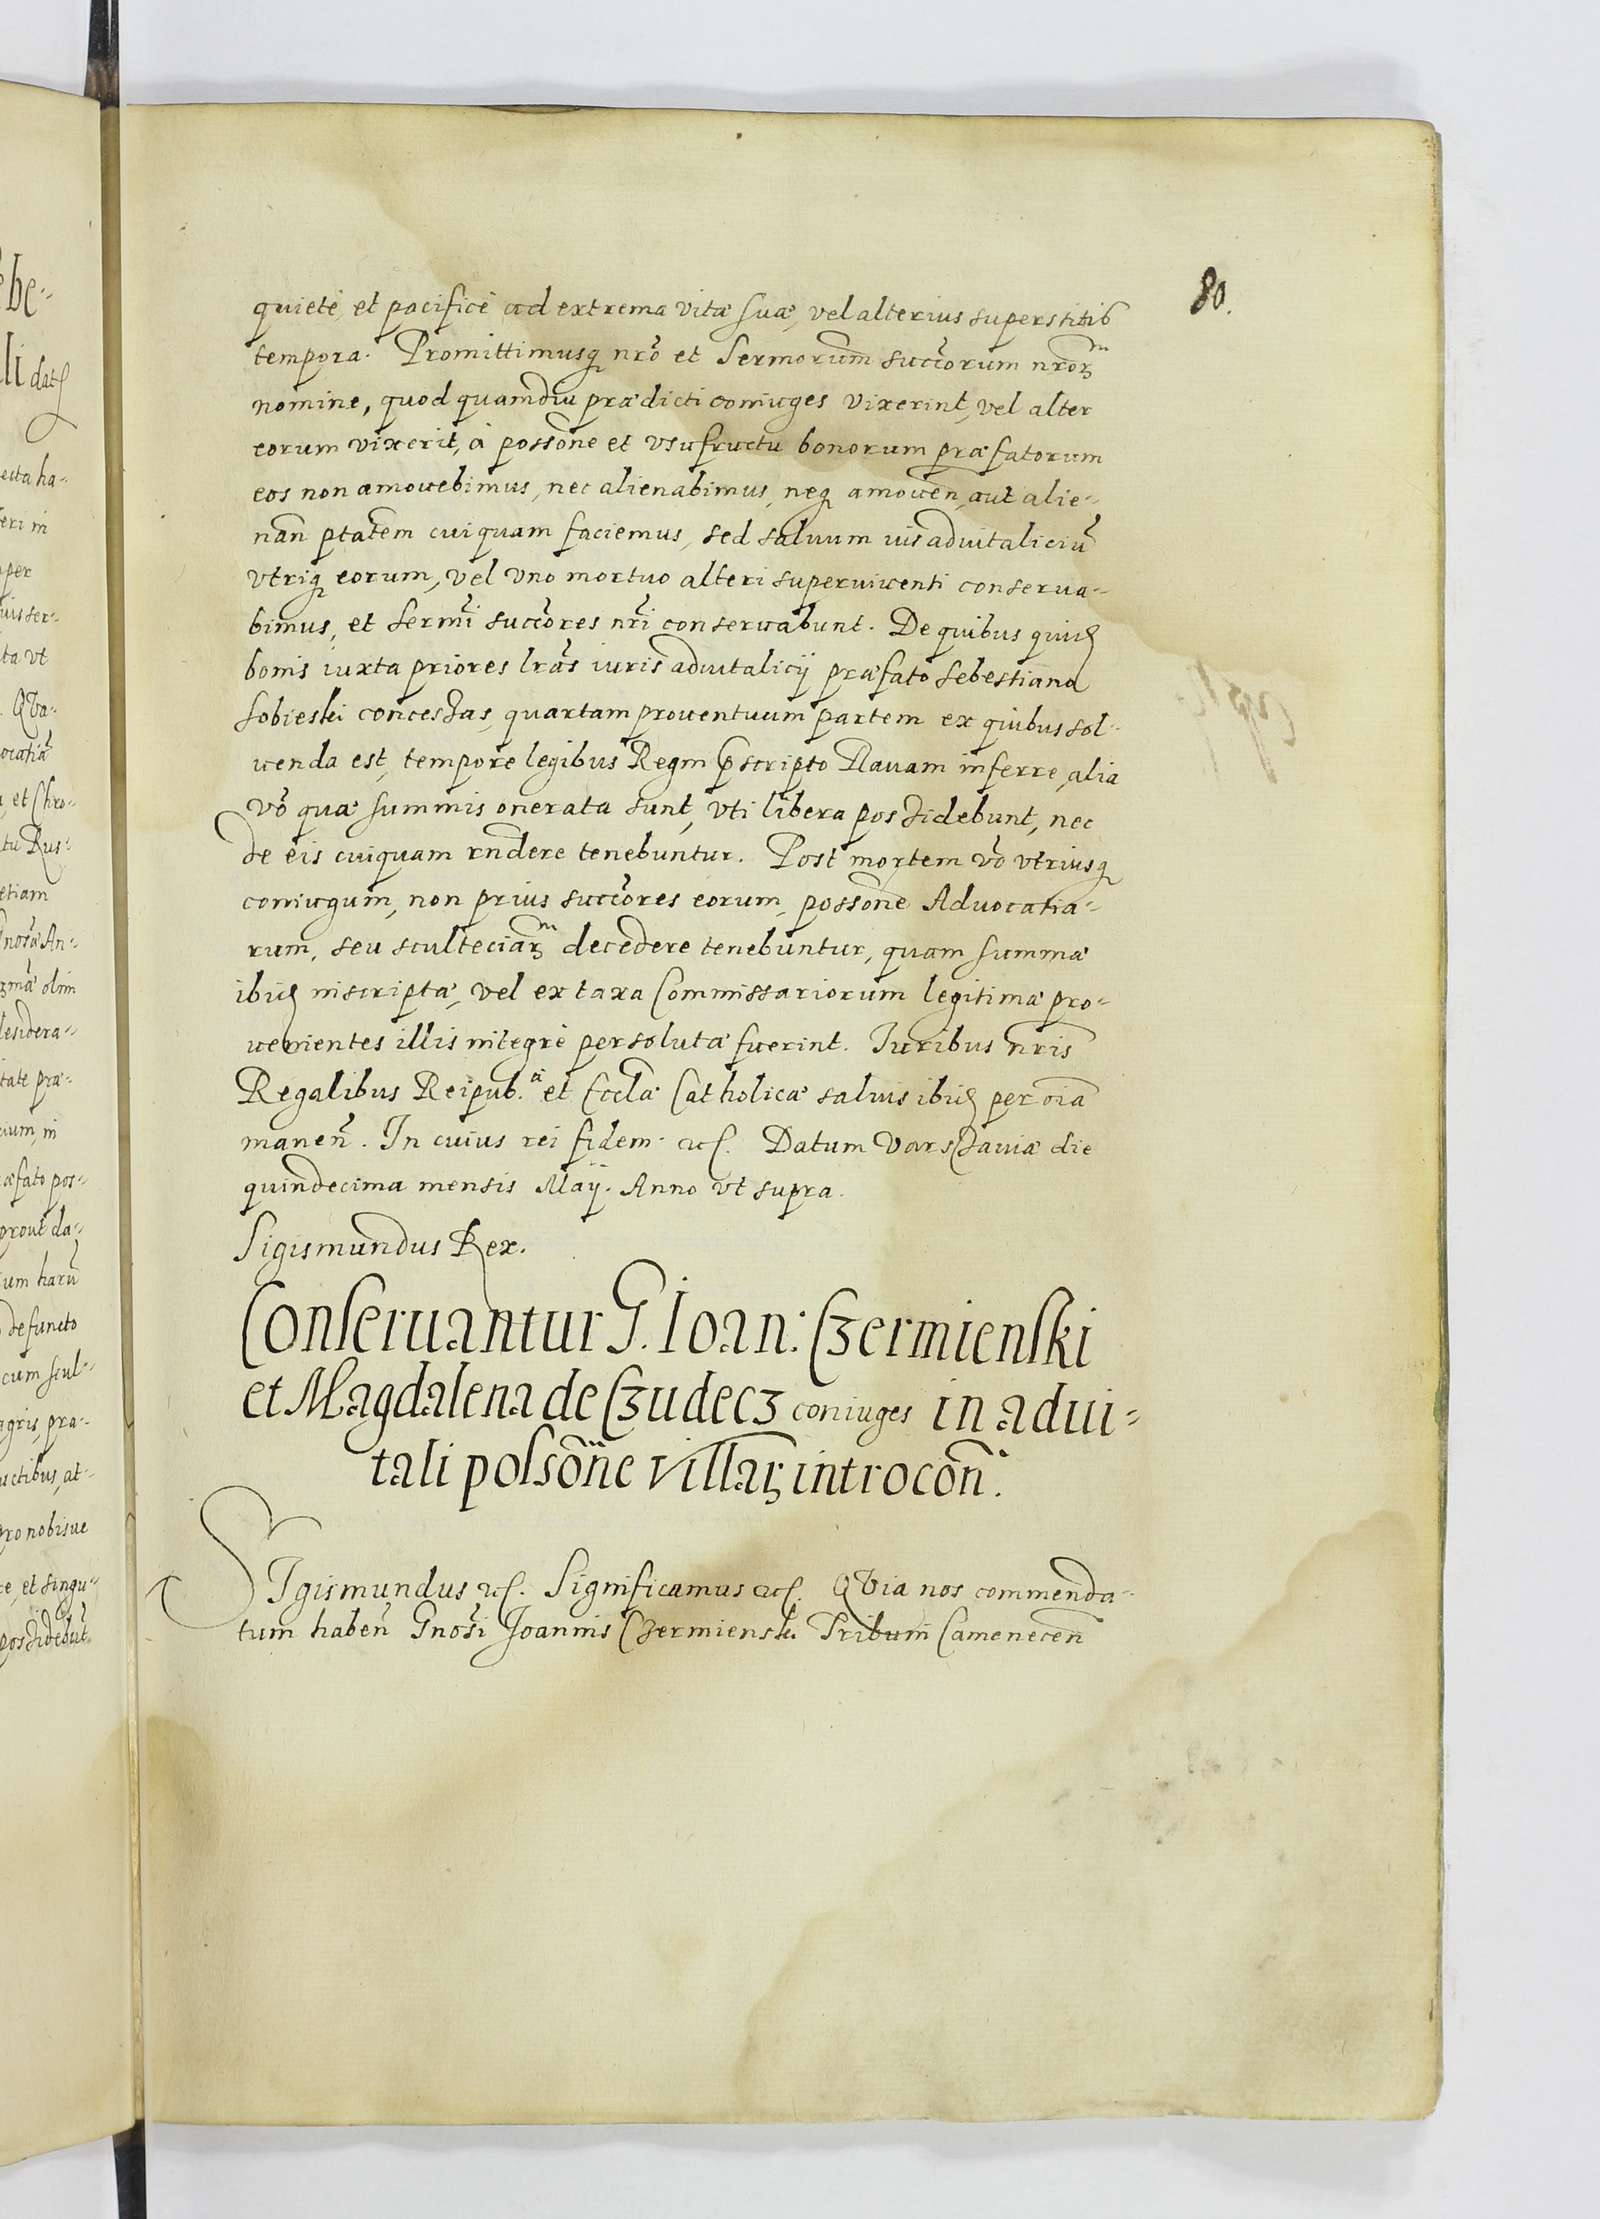 80.
quietè, et pacificè ad extrema vitæ suæ, vel alterius superstitis
tempora. Promittimusq; nrõ et Sermorum̃ succõrum nrõrꝝ
nomine, quod quamdiu prædicti coniuges vixerint, vel alter
eorum vixerit, à possõne et vsufructu bonorum præfatorum
eos non amouebimus, nec alienabimus, neq; amouen̄, aut alie-
nan̄ ptãtem cuiquam faciemus, sed saluum ius aduitaliciũ
vtriq; eorum, vel vno mortuo alteri superuiuenti conserua-
bimus, et Sermĩ succõres nrĩ conseruabunt. De quibus quid
bonis iuxta priores lrãs iuris aduitalicij præfato Sebestiano
Sobieski concessas, quartam prouentuum partem ex quibus sol-
uenda est, tempore legibus Regni pscripto Rauam inferre, alia
Võ quæ summis onerata sunt, vti libera possidebunt, nec
de eis cuiquam rndere tenebuntur. Post mortem võ vtriusq;
coniugum, non prius succõres eorum, possõne Aduocatia-
rum, seu sculteciarꝝ decedere tenebuntur, quam summæ
ibid inscriptæ, vel ex taxa Commissariorum legitimæ pro-
uenientes illis integrè persolutæ fuerint. Iuribus nris̃
Regalibus Reipub.æ et Ecclæ Catholicæ saluis ibid per oiã
manen̄. In cuius rei fidem. etc. Datum Varschauiæ die
quindecima mensis Maij. Anno vt supra.
Sigismundus Rex.
Conseruantur G. Ioan: Czermienski
et Magdalena de Czudecz coniuges in adui-
tali possõne villarꝝ introcõn.
SIgismundus etc. Significamus etc. QVia nos commenda-
tum haben̄ Gnosĩ Joannis Czermienski Tribuni Camenecen̄